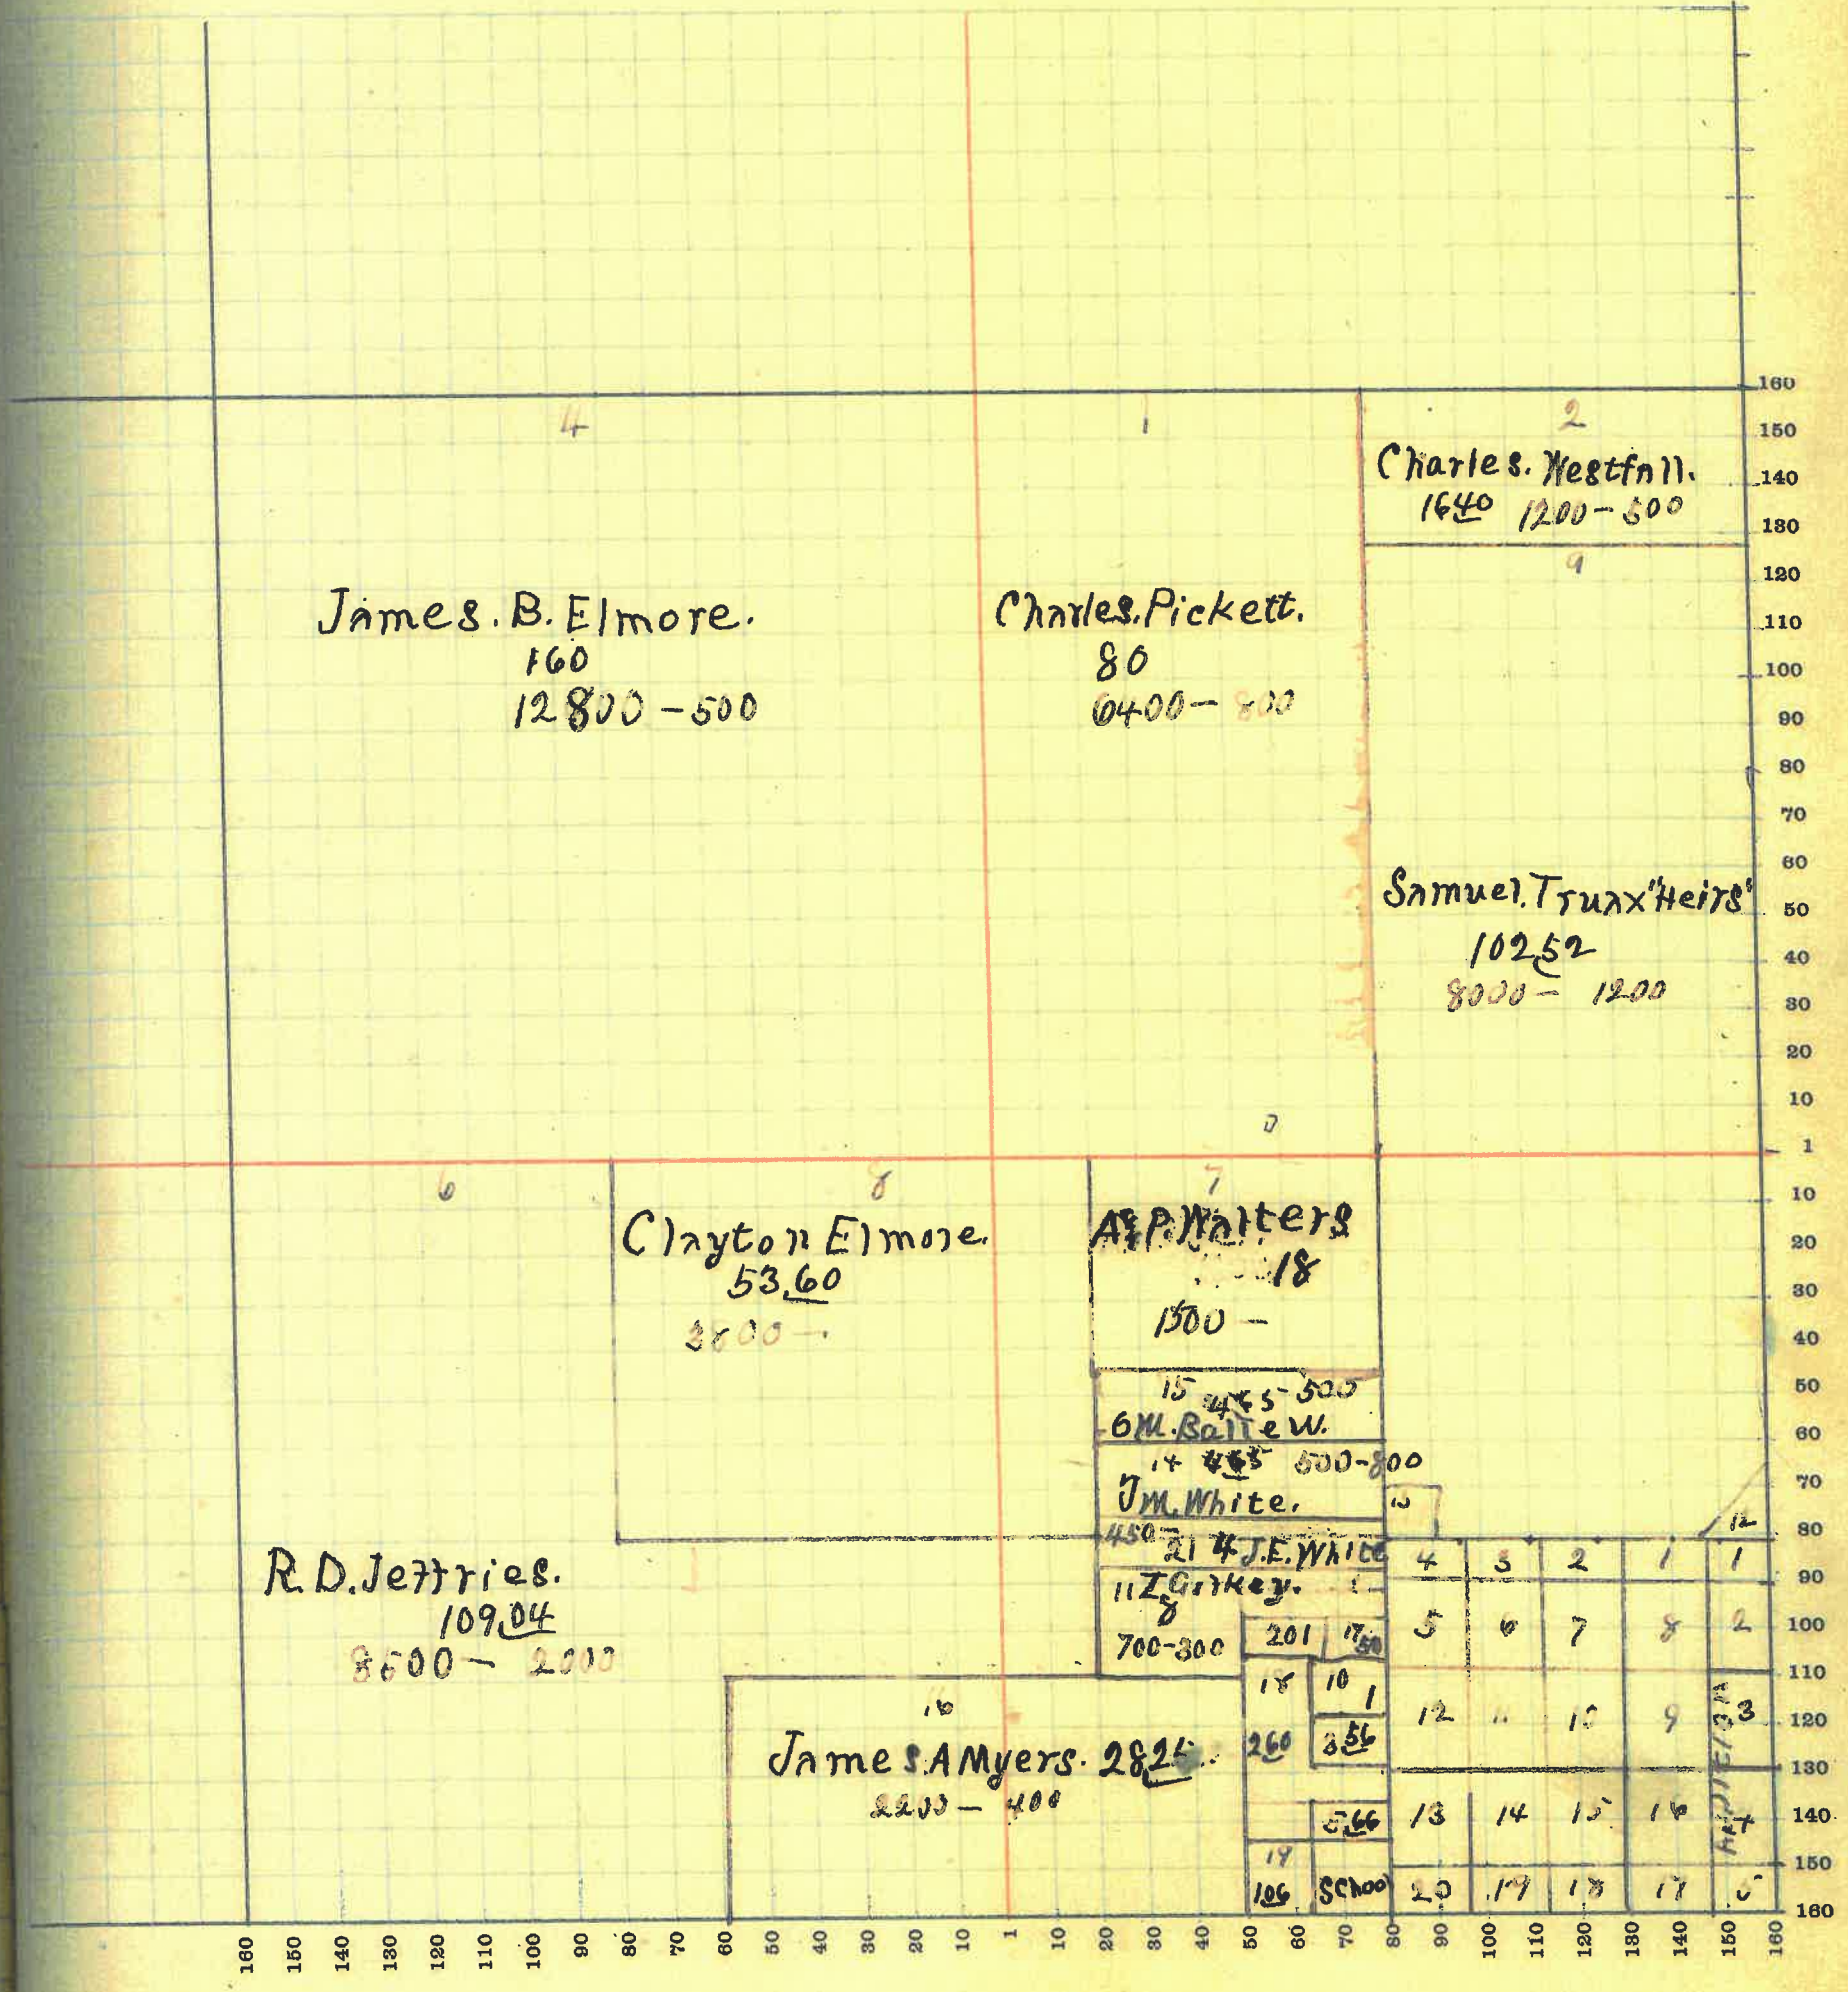 4
James. B. Elmore.
160
12800 - 500
1
Charles. Pickett.
80
6400 - 800
2
Charles. Westfall.
1640 1200 - 500
9
Samuel. Truax "Heirs"
102 52
8000 - 1200
6
R. D. Jeffries.
109.04
8500 - 2000
8
Clayton Elmore.
53.60
7
Walters
18
1500 -
15 465 500
M. Ballew.
14 465 500 - 800
J M. White.
450 -
21 4 J. E. White
11 Z Gilkey.
8
700 - 300
201 17 50
18 10 1
260 3 56
5.66
19
106 School
16
James. A Myers. 28.25
2200 - 400
12
4 3 2 1 1
5 6 7 8 2
12 11 10 9 3
13 14 15 16 4
20 19 18 17 5
ADDITION
160
150
140
130
120
110
100
90
80
70
60
50
40
30
20
10
1
10
20
30
40
50
60
70
80
90
100
110
120
130
140
150
160
160 150 140 130 120 110 100 90 80 70 60 50 40 30 20 10 1 10 20 30 40 50 60 70 80 90 100 110 120 130 140 150 160